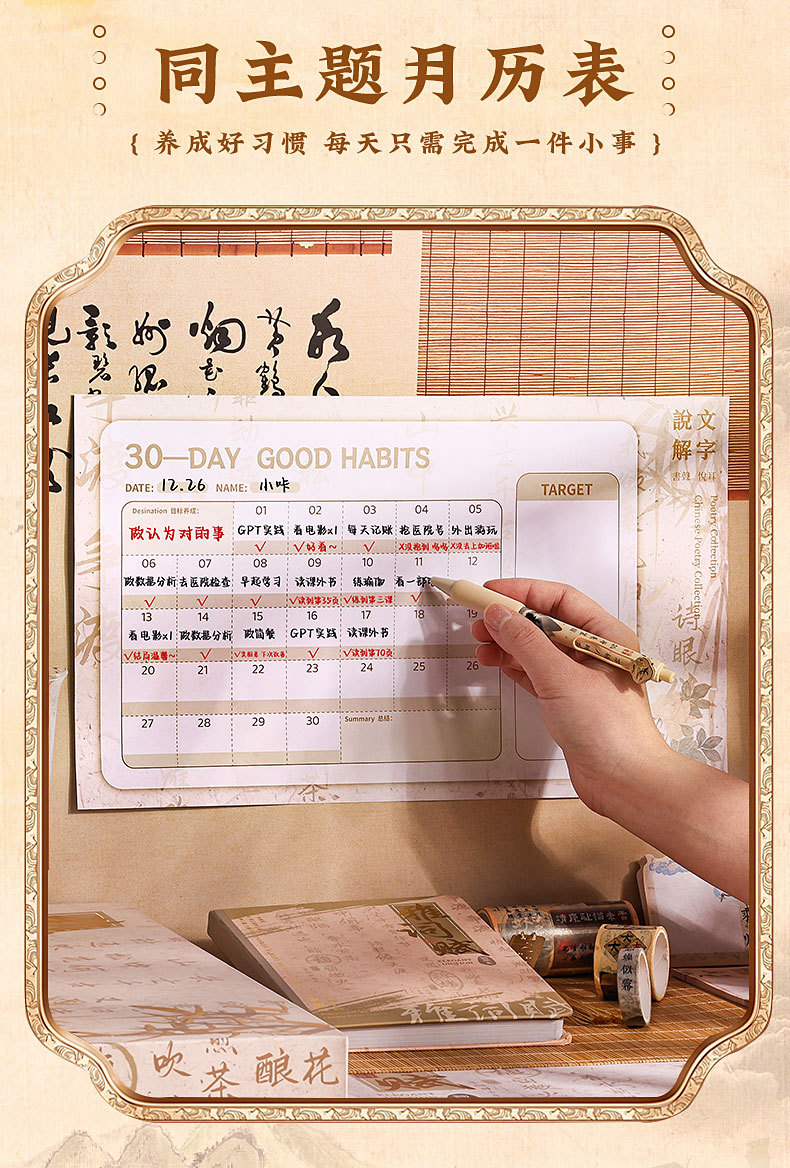 同主题月历表
{ 养成好习惯 每天只需完成一件小事 }
30—DAY GOOD HABITS
DATE: 12.26 NAME: 小咔
Desination 目标养成:
做认为对的事
01 02 03 04 05
GPT实践 看电影x1 每天记账 抢医院号 外出游玩
√ √好看~ √ X没抢到 呜呜
06 07 08 09 10 11 12
做数据分析 去医院检查 早起学习 读课外书 练瑜伽 看一部
√ √ √ √读到第35页 √练到第三课 √
13 14 15 16 17 18 19
看电影x1 做数据分析 做简餐 GPT实践 读课外书
√结局温馨~ √ √ √读到第70页
20 21 22 23 24 25 26
27 28 29 30
Summary 总结:
TARGET
說文
解字
Poetry Collection
Chinese Poetry Collection
诗眼
雅词赋
吹
煎茶
酿花